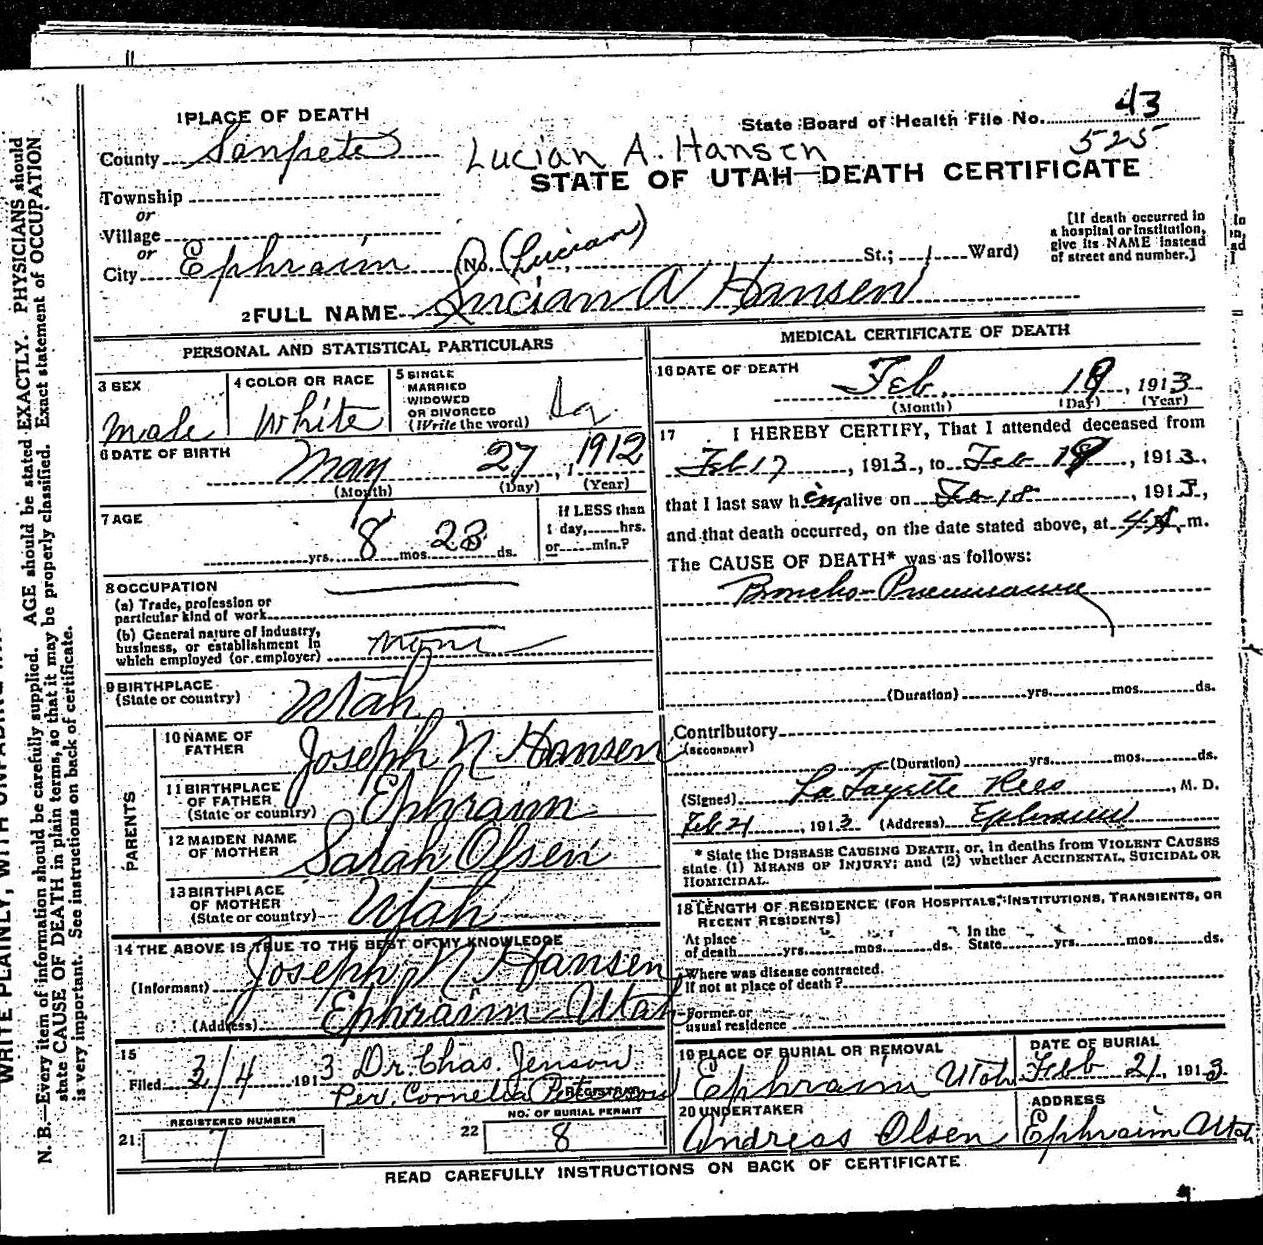 1 PLACE OF DEATH
State Board of Health File No. 43
525
County Sanpete
Lucian A. Hansen
STATE OF UTAH—DEATH CERTIFICATE
Township
or
Village
or
City Ephraim (No. (Lucian) St.; 1 Ward)
[If death occurred in
a hospital or institution,
give its NAME instead
of street and number.]
2 FULL NAME Lucian A Hansen
PERSONAL AND STATISTICAL PARTICULARS
3 SEX
Male
4 COLOR OR RACE
White
5 SINGLE
MARRIED
WIDOWED
OR DIVORCED
(Write the word)
6 DATE OF BIRTH
May 27, 1912
(Month) (Day) (Year)
7 AGE
yrs. 8 mos. 23 ds.
If LESS than
1 day, hrs.
or min.?
8 OCCUPATION
(a) Trade, profession or
particular kind of work
(b) General nature of industry,
business, or establishment in
which employed (or employer) None
9 BIRTHPLACE
(State or country) Utah
PARENTS
10 NAME OF
FATHER Joseph N Hansen
11 BIRTHPLACE
OF FATHER
(State or country) Ephraim
12 MAIDEN NAME
OF MOTHER Sarah Olsen
13 BIRTHPLACE
OF MOTHER
(State or country) Utah
14 THE ABOVE IS TRUE TO THE BEST OF MY KNOWLEDGE
(Informant) Joseph N Hansen
(Address) Ephraim Utah
15
Filed 3/4 1913 Dr. Chas. Jenson
Per Cornelia Peterson REGISTRAR
REGISTERED NUMBER
21 7
NO. OF BURIAL PERMIT
22 8
MEDICAL CERTIFICATE OF DEATH
16 DATE OF DEATH
Feb 19, 1913
(Month) (Day) (Year)
17 I HEREBY CERTIFY, That I attended deceased from
Feb 17, 1913, to Feb 19, 1913,
that I last saw him alive on Feb 18, 1913,
and that death occurred, on the date stated above, at 4 A m.
The CAUSE OF DEATH* was as follows:
Broncho-Pneumonia
(Duration) yrs. mos. ds.
Contributory
(SECONDARY)
(Duration) yrs. mos. ds.
(Signed) LaFayette Rees, M. D.
Feb 21, 1913 (Address) Ephraim
* State the DISEASE CAUSING DEATH, or, in deaths from VIOLENT CAUSES
state (1) MEANS OF INJURY; and (2) whether ACCIDENTAL, SUICIDAL OR
HOMICIDAL.
18 LENGTH OF RESIDENCE (FOR HOSPITALS, INSTITUTIONS, TRANSIENTS, OR
RECENT RESIDENTS)
At place In the
of death yrs. mos. ds. State yrs. mos. ds.
Where was disease contracted,
If not at place of death?
Former or
usual residence
19 PLACE OF BURIAL OR REMOVAL
Ephraim Utah
DATE OF BURIAL
Febb 21, 1913
20 UNDERTAKER
Andreas Olsen
ADDRESS
Ephraim Utah
READ CAREFULLY INSTRUCTIONS ON BACK OF CERTIFICATE
N. B.—Every item of information should be carefully supplied. AGE should be stated EXACTLY. PHYSICIANS should
state CAUSE OF DEATH in plain terms, so that it may be properly classified. Exact statement of OCCUPATION
is very important. See instructions on back of certificate.